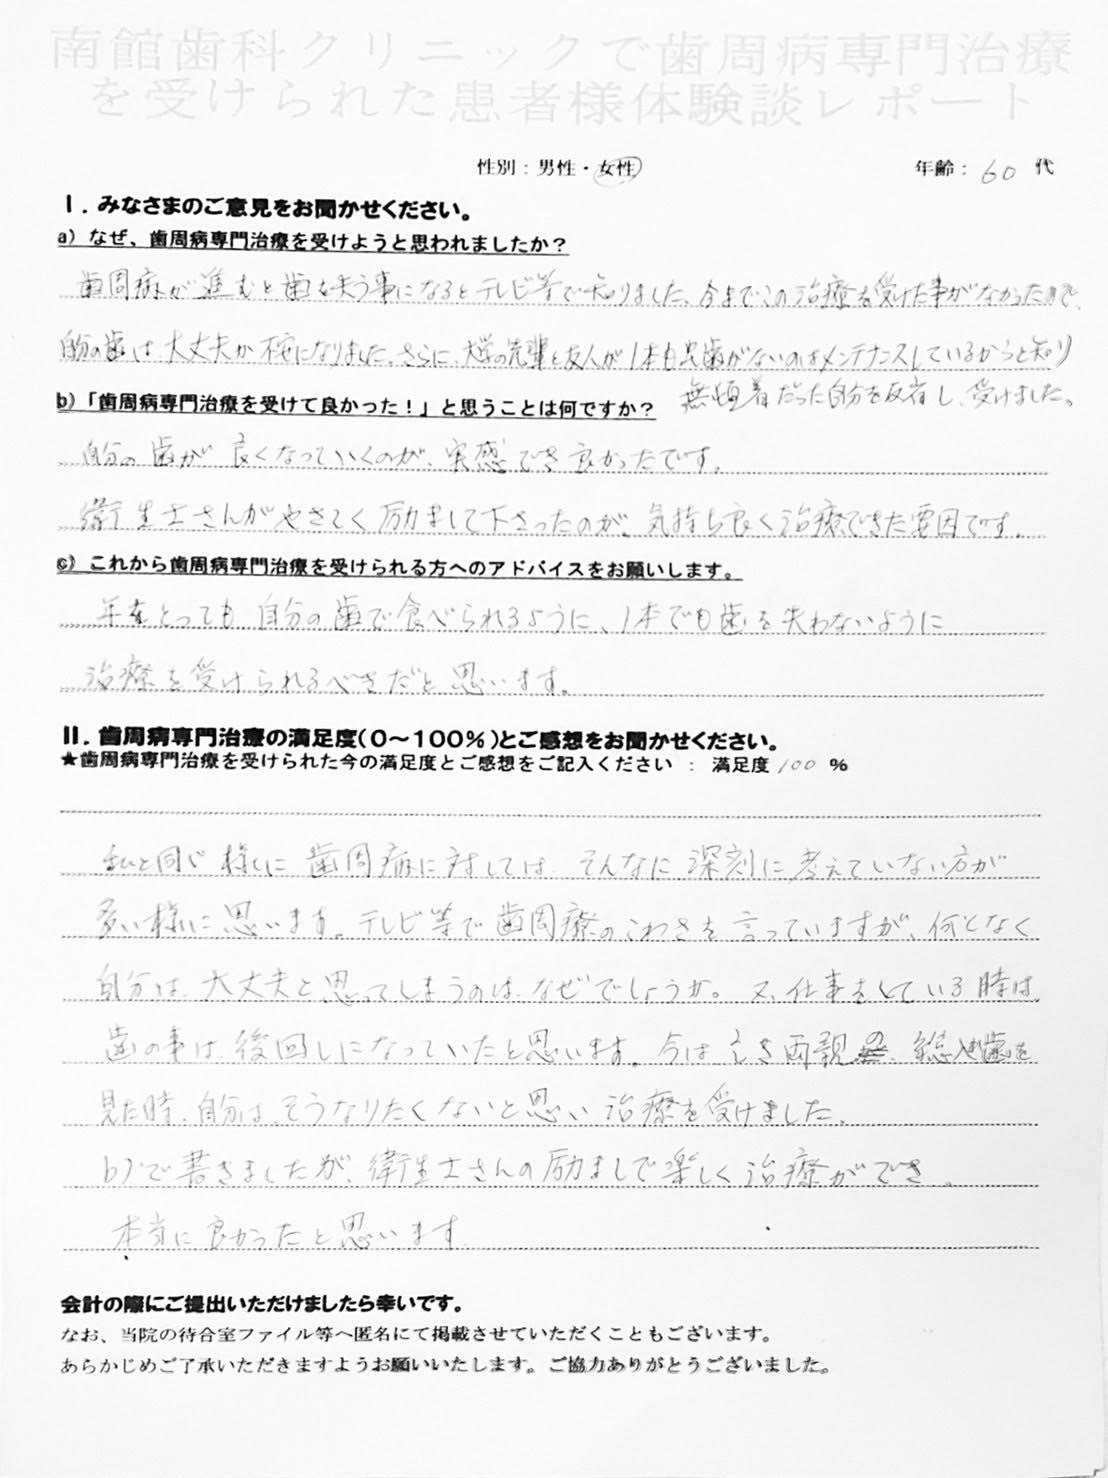 南館歯科クリニックで歯周病専門治療
を受けられた患者様体験談レポート
性別：男性・女性 年齢：60 代
Ⅰ．みなさまのご意見をお聞かせください。
a）なぜ、歯周病専門治療を受けようと思われましたか？
歯周病が進むと歯を失う事になるとテレビ等で知りました。今までこの治療を受けた事がなかったので、
自分の歯は大丈夫か不安になりました。さらに、大学の先輩と友人が1本も虫歯がないのはメンテナンスしているからと知り
無頓着だった自分を反省し、受けました。
b）「歯周病専門治療を受けて良かった！」と思うことは何ですか？
自分の歯が良くなっていくのが、実感でき良かったです。
衛生士さんがやさしく励まして下さったのが、気持ち良く治療できた要因です。
c）これから歯周病専門治療を受けられる方へのアドバイスをお願いします。
年をとっても自分の歯で食べられるように、1本でも歯を失わないように
治療を受けられるべきだと思います。
Ⅱ．歯周病専門治療の満足度（０～１００％）とご感想をお聞かせください。
★歯周病専門治療を受けられた今の満足度とご感想をご記入ください ： 満足度 100 ％
私と同じ様に歯周病に対しては、そんなに深刻に考えていない方が
多い様に思います。テレビ等で歯周療のこわさを言っていますが、何となく
自分は、大丈夫と思ってしまうのは、なぜでしょうか。又、仕事をしている時は、
歯の事は、後回しになっていたと思います。今は亡き両親の総入歯を
見た時、自分は、そうなりたくないと思い治療を受けました。
b)で書きましたが、衛生士さんの励ましで楽しく治療ができ、
本当に良かったと思います
会計の際にご提出いただけましたら幸いです。
なお、当院の待合室ファイル等へ匿名にて掲載させていただくこともございます。
あらかじめご了承いただきますようお願いいたします。ご協力ありがとうございました。